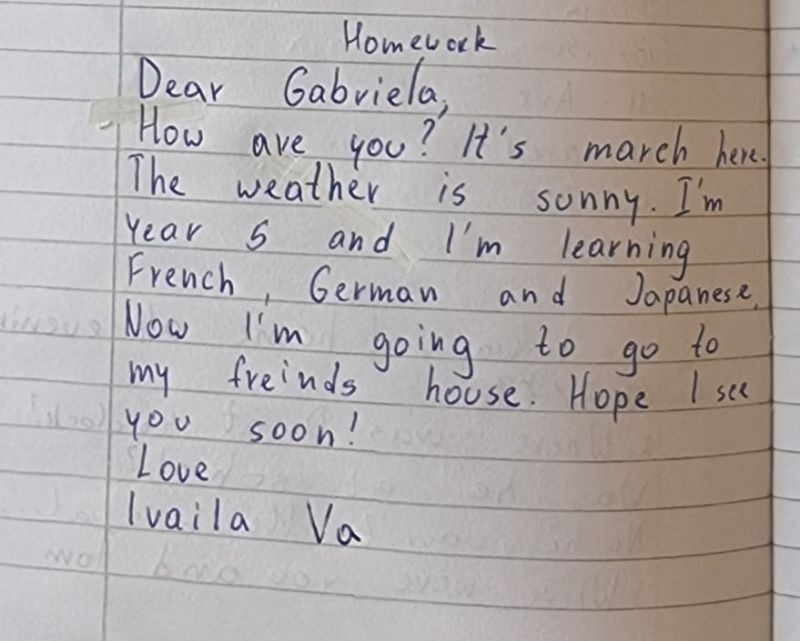 Homework
Dear Gabriela,
How are you? It's march here.
The weather is sunny. I'm
year 5 and I'm learning
French, German and Japanese.
Now I'm going to go to
my freinds house. Hope I see
you soon!
Love
Ivaila Va